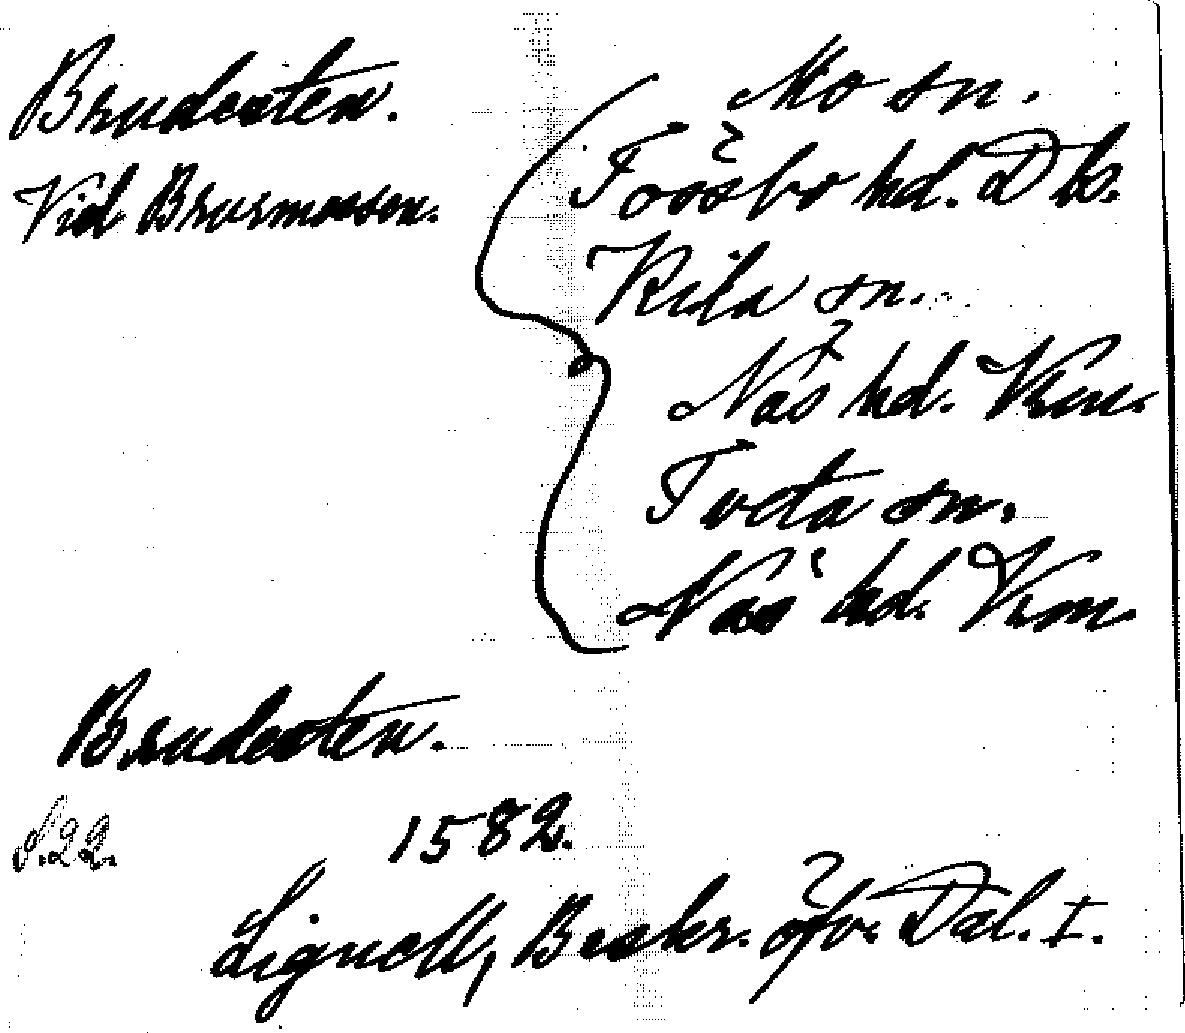 Brudesten.
Vid Brurmossen.
Mo sn.
Tössbo hd. Dls.
Kila sn.
Näs hd. Vrm.
Tveta sn.
Näs hd. Vrm.
Brudesten.
S. 22.
1582.
Lignell, Beskr. öfv. Dal. I.